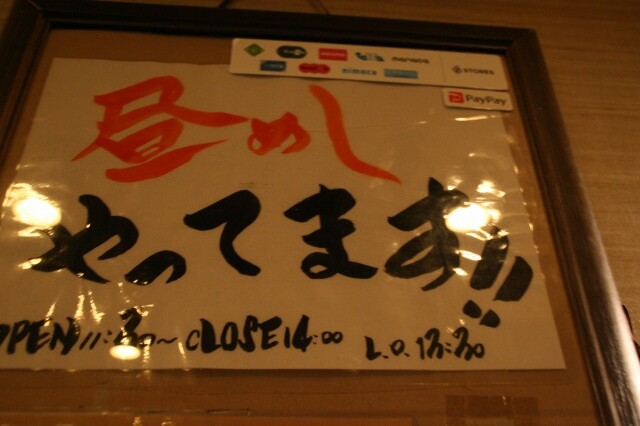 manaca
nimoca
STORES
PayPay
昼めし
やってます!!
OPEN 11:30~CLOSE 14:00 L.O. 13:30